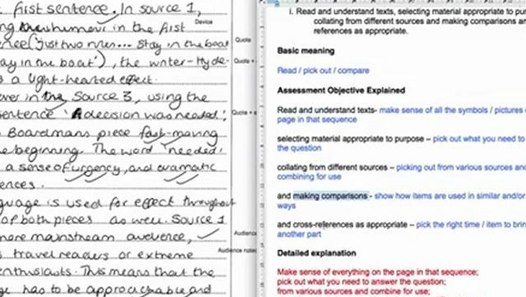 first sentence. In source 1,
Device
the humour in the first
sentence ('Just two runs... Stay in the boat
Quote
stay in the boat'), the writer - Hyde-
Quote
a light-hearted effect.
in the Source 3, using the
sentence 'A decision was needed.'
Quote
Boardmans piece fast-moving
the beginning. The word 'needed'
a sense of urgency, and dramatic
language is used for effect throughout
of both pieces as well. Source 1
more mainstream audience,
Audience
travel readers or extreme
Audience
enthusiasts. This means that the
has to be approachable and
i. Read and understand texts, selecting material appropriate to purpose
collating from different sources and making comparisons and
references as appropriate.
Basic meaning
Read / pick out / compare
Assessment Objective Explained
Read and understand texts- make sense of all the symbols / pictures
page in that sequence
selecting material appropriate to purpose – pick out what you need to
the question
collating from different sources – picking out from various sources and
combining for use
and making comparisons - show how items are used in similar and/or
ways
and cross-references as appropriate – pick the right time / item to bring
another part
Detailed explanation
Make sense of everything on the page in that sequence;
pick out what you need to answer the question;
from various sources and combine for use;